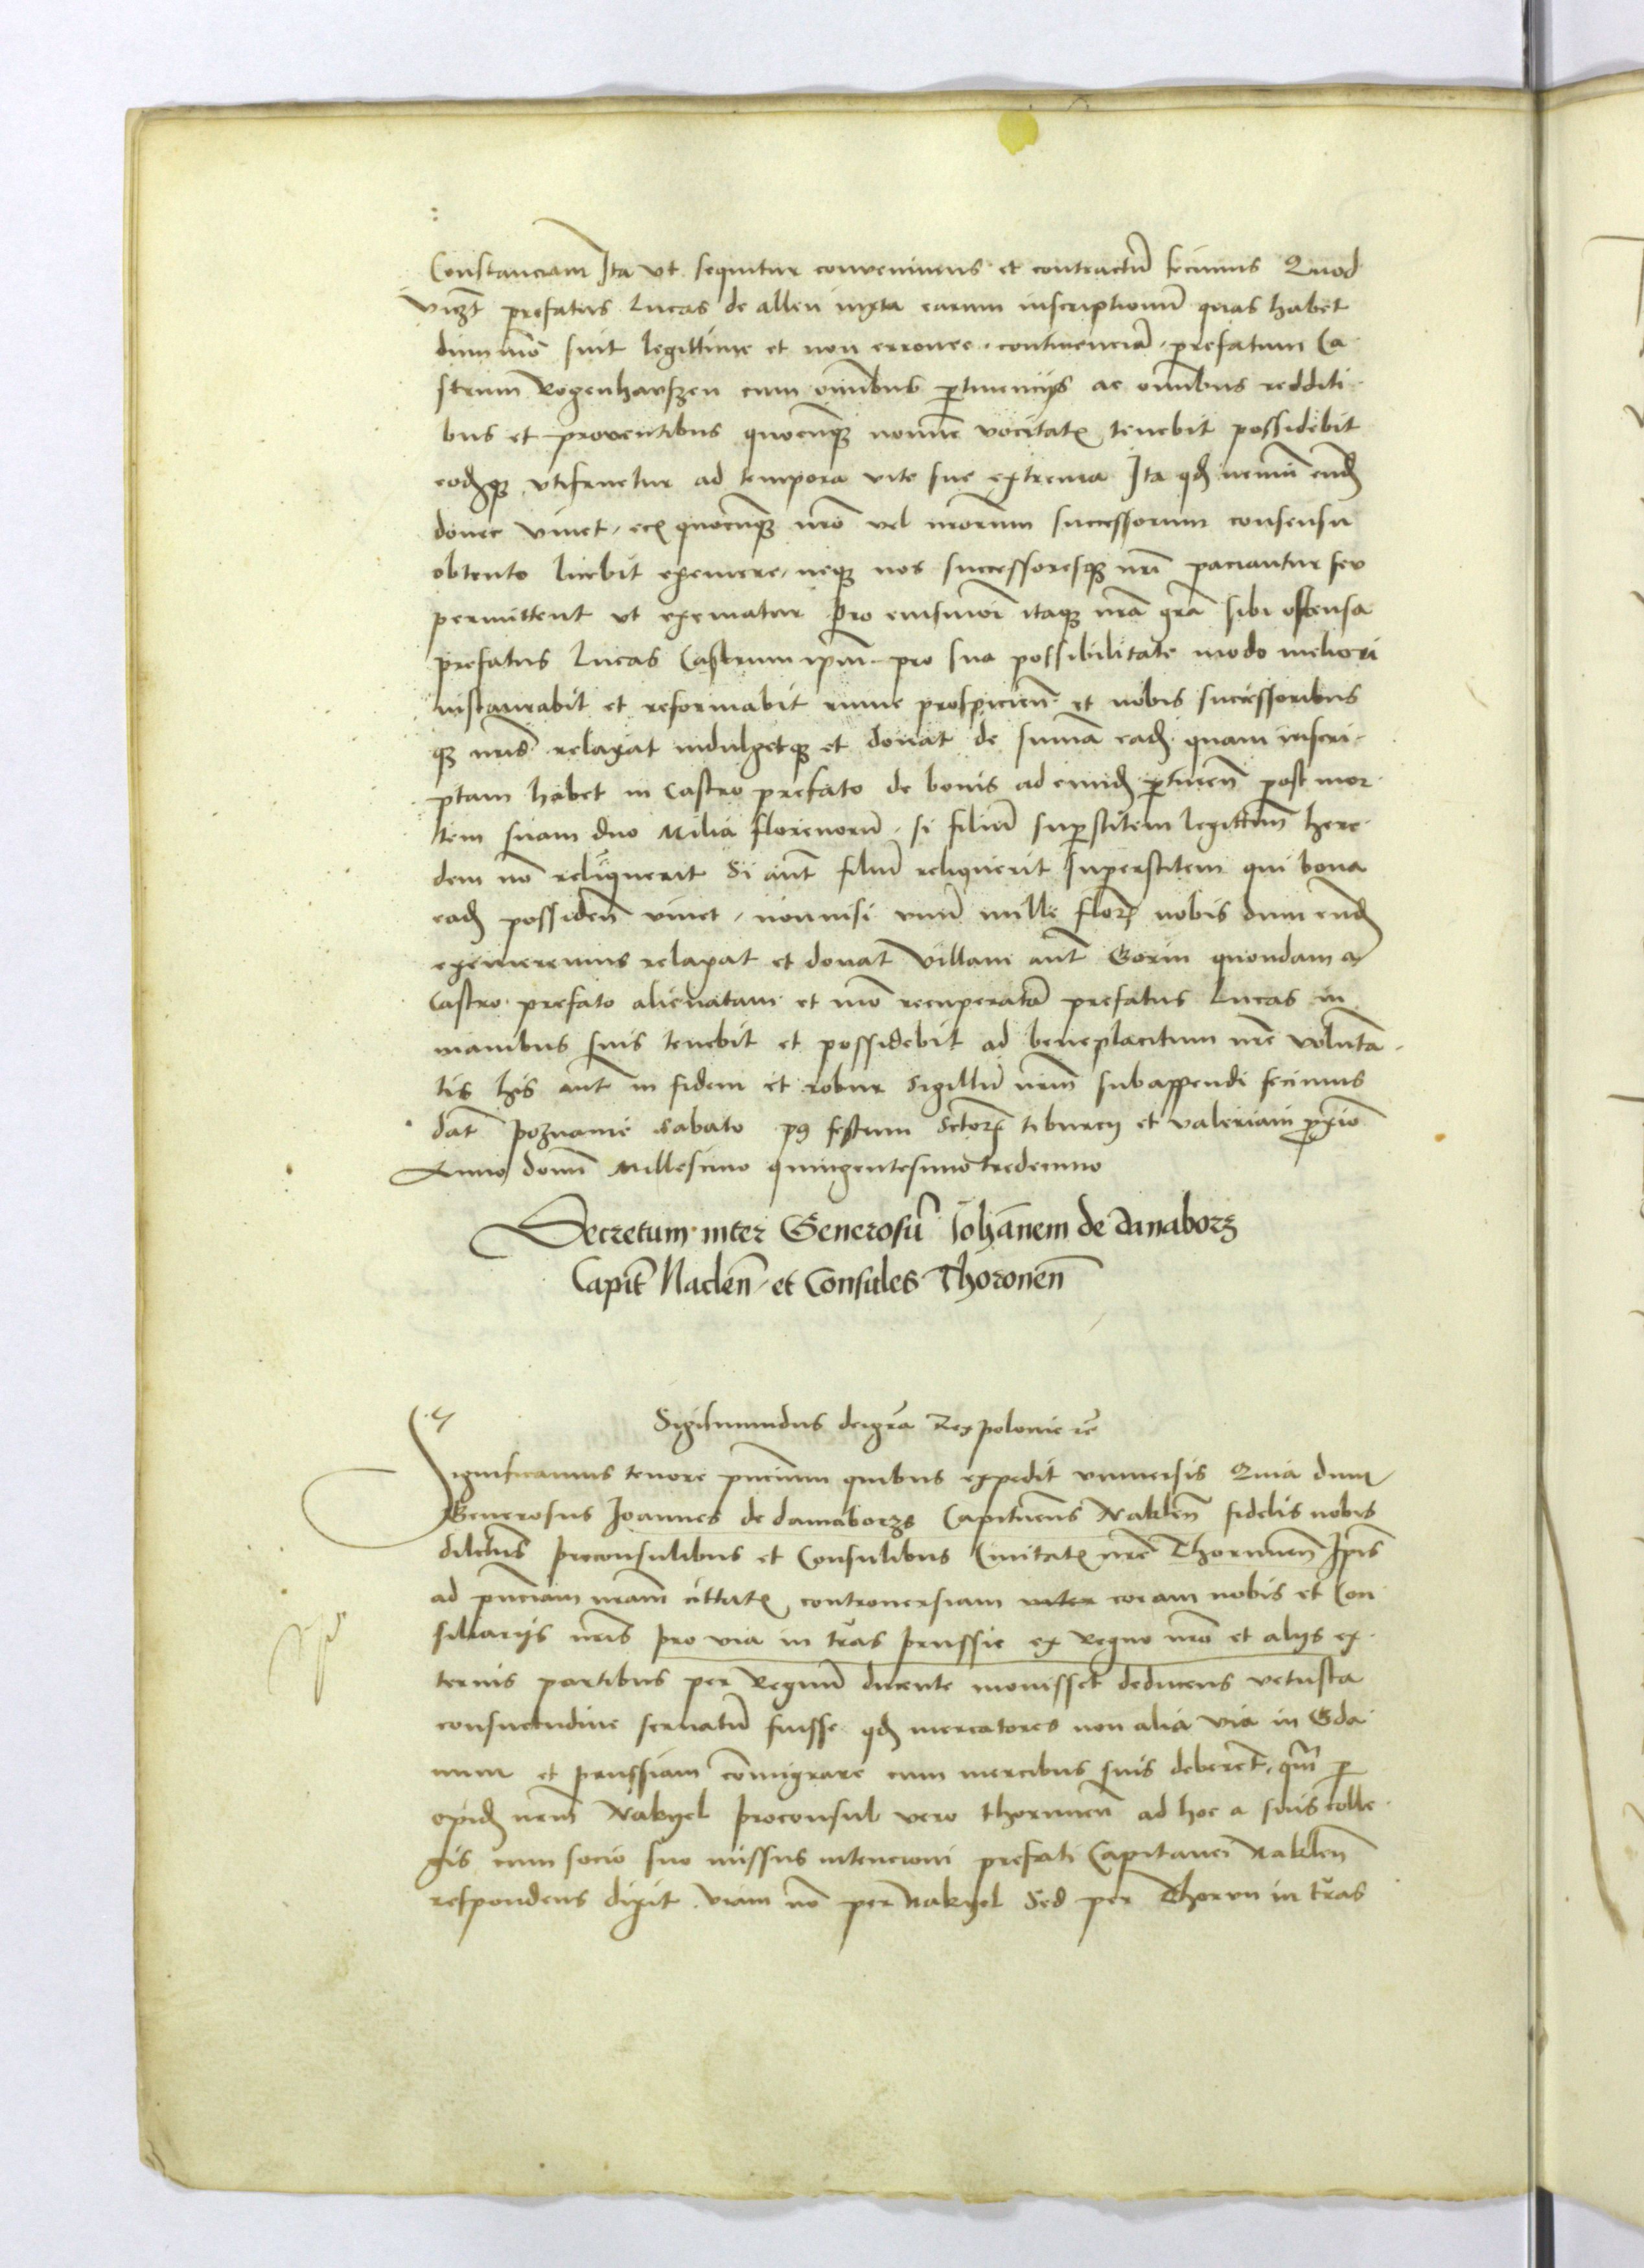 Constanciam Ita vt sequitur convenimus et contractũ fecimus Quod
vizt prefatus Lucas de allen iuxta earum inscriptionũ quas habet
dummõ sint legittime et non erronee continenciã prefatum Ca
strum Rogenhavszen cum oĩnibus ptinencijs ac omnibus redditi
bus et proventibus quocunqꝫ nomine vocitatꝭ tenebit possidebit
eodꝫqꝫ vtifruetur ad tempora vite sue extrema Ita qđ nemini eund
donec vivet, quocunqꝫ nr̃o vel nr̃orum successorum consensu
obtento licebit exemere, neqꝫ nos successoresqꝫ nr̃i paciantur seu
permittent ut exematur Pro eiusmõi itaqꝫ nr̃a grã sibi ostensa
prefatus Lucas Castrum ip̃m pro sua possibilitate modo meliori
instaurabit et reformabit ruine prospicieñ et nobis successoribus
qꝫ nr̃is relaxat indulgetqꝫ et donat de sum̃a ead quam inscri
ptam habet in Castro prefato de bonis ad eund ptineñ post mor
tem suam duo Milia florenorũ, si filiũ suꝑstitem legittimũ here
dem nõ reliquerit Si aũt filiũ reliquerit superstitem qui bona
ead possideñ vivet, nonnisi vnũ mille florꝭ nobis dum eund
exemeremus relaxat et donat Villam aũt Gorin quondam a
Castro prefato alienatam et mõ recuperatã prefatus Lucas in
manibus suis tenebit et possidebit ad beneplacitum nr̃e volunta
tis his aũt in fidem et robur Sigillũ nr̃m subappendi fecimus
dat̃ Poznanie sabato pꝰ festum Sctorꝭ tiburcij et valeriani ꝓxiõ
Anno domĩ Millesimo quingentesimo tredecimo
Decretum inter Generosũ Johãnem de Danaborz
Capit̃ Nacleñ et Consules Thoroneñ
Sigismundus dei grã Rex polonie rc̃
Significamus tenore pñcium quibus expedit vniversis Quia dum
Generosus Joannes de danaborzs Capitaneus Nakleñ fidelis nobis
dilectus preconsulibus et Consulibus Civitatꝭ nr̃e Thoruneñ Ip̃is
ad pñciam nr̃am citatꝭ controversiam inter coram nobis et Con
siliarijs nr̃is pro via in tr̃as prussie ex Regno nr̃o et alijs ex
ternis partibus per Regnũ ducente movisset deducens vetusta
consuetudine servatũ fuisse qđ mercatores non alia via in Gda
num et prussiam com̃igrare cum mercibus suis deberet̃, qm̃ ꝑ
opid nr̃m Nakyel proconsul vero thoruneñ ad hoc a suis colle
gis cum socio suo missus intencioni prefati Capitanei Nakleñ
respondens dixit viam nõ per Nakyel Sed per Thorvn in tr̃as